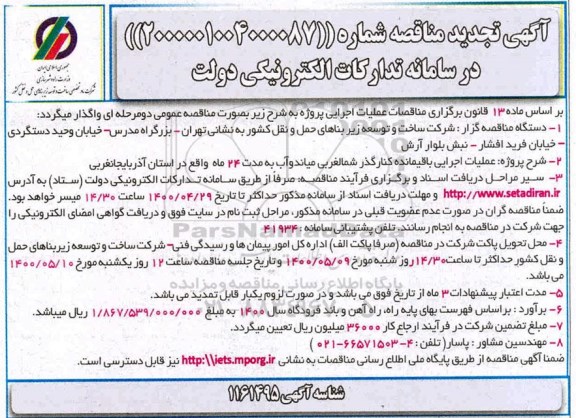 آگهی تجدید مناقصه شماره ((۲۰۰۰۰۰۱۰۰۴۰۰۰۰۸۷))
در سامانه تدارکات الکترونیکی دولت
جمهوری اسلامی ایران
وزارت راه و شهرسازی
شرکت ساخت و توسعه زیربناهای حمل و نقل کشور
بر اساس ماده ۱۳ قانون برگزاری مناقصات عملیات اجرایی پروژه به شرح زیر بصورت مناقصه عمومی دومرحله ای واگذار میگردد:
۱- دستگاه مناقصه گزار : شرکت ساخت و توسعه زیر بناهای حمل و نقل کشور به نشانی تهران - بزرگراه مدرس- خیابان وحید دستگردی
- خیابان فرید افشار - نبش بلوار آرش
۲- شرح پروژه: عملیات اجرایی باقیمانده کنارگذر شمالغربی میاندوآب به مدت ۲۴ ماه واقع در استان آذربایجانغربی
۳- سیر مراحل دریافت اسناد و برگزاری فرآیند مناقصه: صرفاً از طریق سامانه تدارکات الکترونیکی دولت (ستاد) به آدرس
http://www.setadiran.ir و مهلت دریافت اسناد از سامانه مذکور حداکثر تا تاریخ ۱۴۰۰/۰۴/۲۹ ساعت ۱۴/۳۰ میسر خواهد بود.
ضمناً مناقصه گران در صورت عدم عضویت قبلی در سامانه مذکور، مراحل ثبت نام در سایت فوق و دریافت گواهی امضای الکترونیکی را
جهت شرکت در مناقصه به انجام رسانند. تلفن پشتیبانی سامانه : ۴۱۹۳۴
۴- محل تحویل پاکت شرکت در مناقصه (صرفا پاکت الف) اداره کل امور پیمان ها و رسیدگی فنی-شرکت ساخت و توسعه زیربناهای حمل
و نقل کشور حداکثر تا ساعت ۱۴/۳۰ روز شنبه مورخ ۱۴۰۰/۰۵/۰۹ و تاریخ جلسه مناقصه ساعت ۱۲ روز یکشنبه مورخ ۱۴۰۰/۰۵/۱۰
می باشد.
۵- مدت اعتبار پیشنهادات ۳ ماه از تاریخ فوق می باشد و در صورت لزوم یکبار قابل تمدید می باشد.
۶- برآورد : براساس فهرست بهای پایه راه، راه آهن و باند فرودگاه سال ۱۴۰۰ به مبلغ ۱/۸۶۷/۵۳۹/۰۰۰/۰۰۰ ریال میباشد.
۷- مبلغ تضمین شرکت در فرآیند ارجاع کار ۳۶۰۰۰ میلیون ریال تعیین میگردد.
۸- مهندسین مشاور : پاسار ( تلفن : ۴-۶۶۵۷۱۵۰۳-۰۲۱)
ضمناً آگهی مناقصه از طریق پایگاه ملی اطلاع رسانی مناقصات به نشانی http:\\iets.mporg.ir نیز قابل دسترسی است.
شناسه آگهی ۱۱۶۱۴۹۵